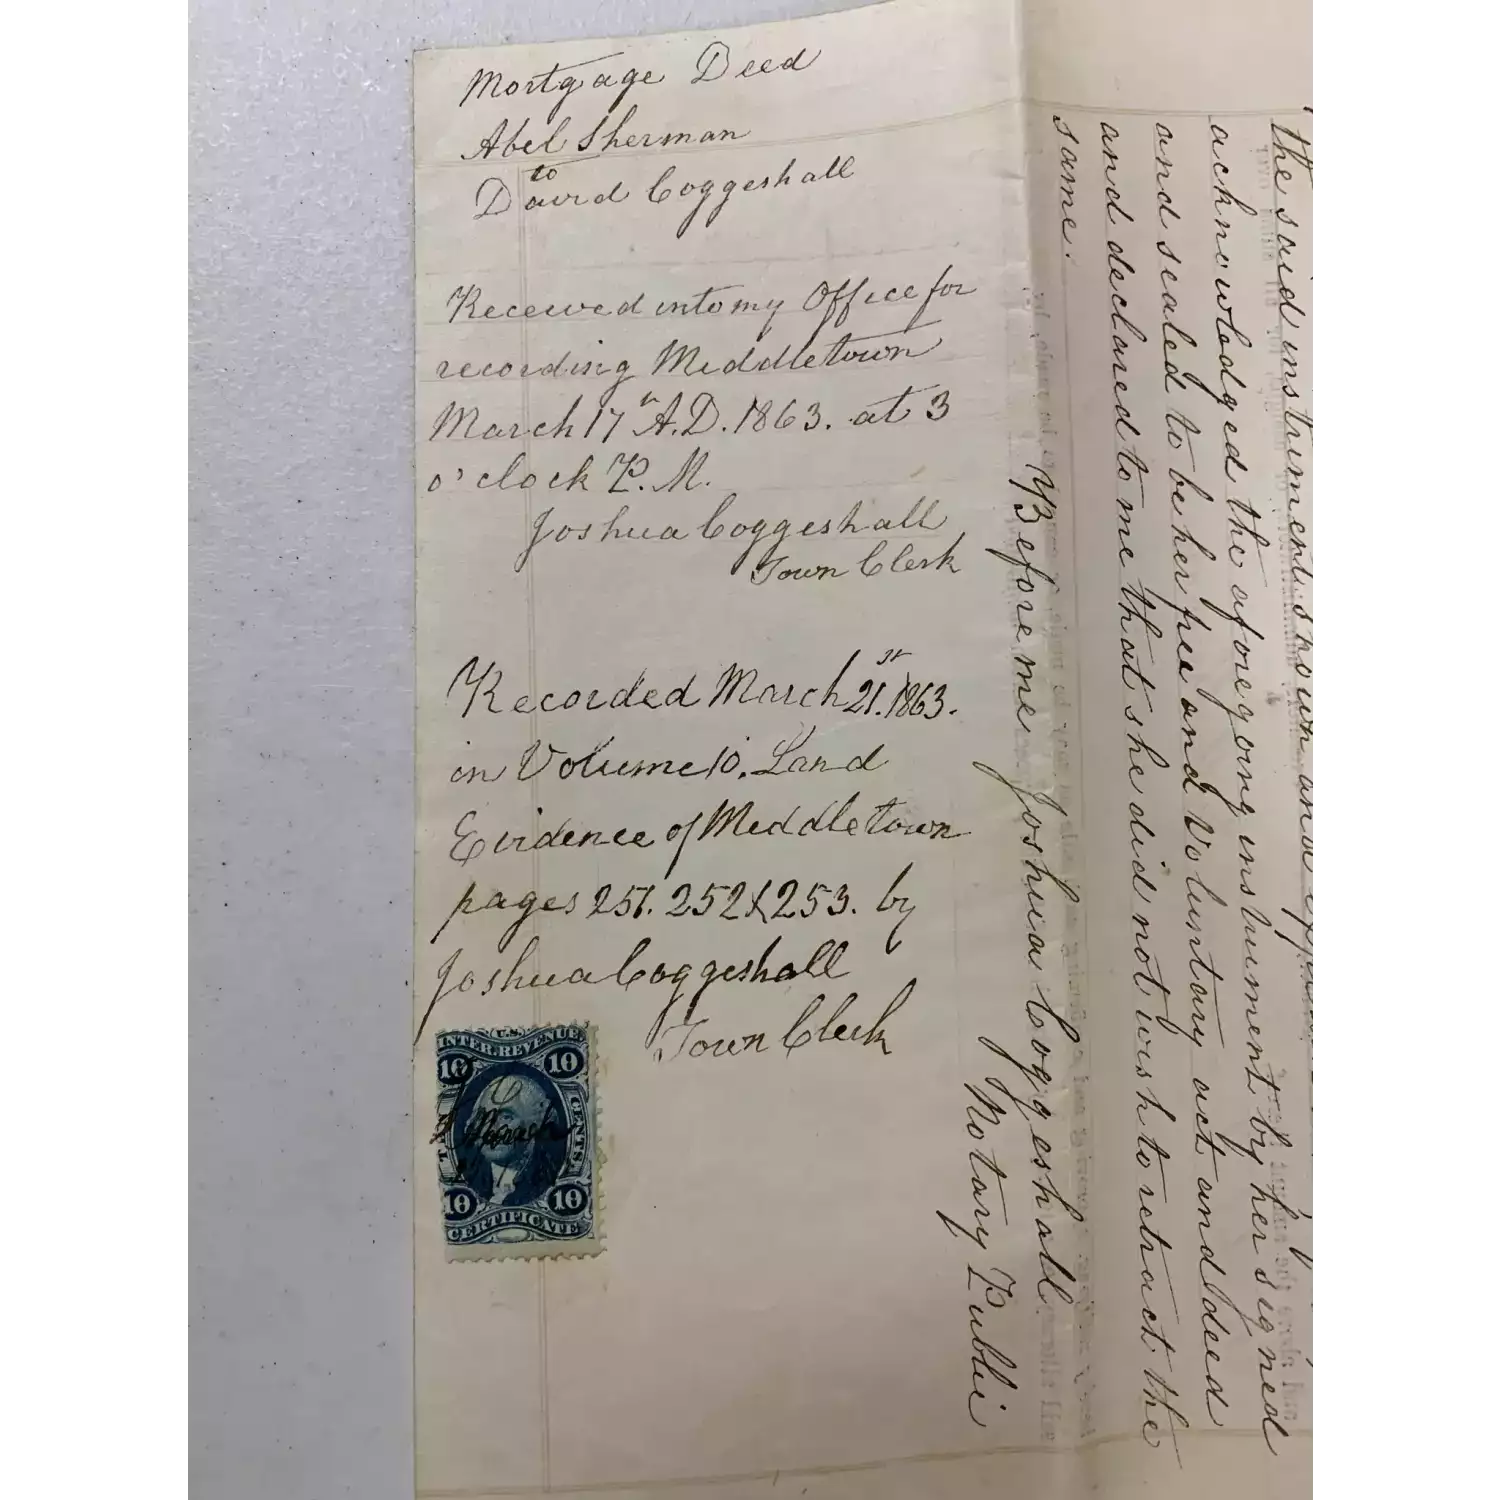 Mortgage Deed
Abel Sherman
to
David Coggeshall
Received into my Office for
recording Middletown
March 17th A.D. 1863. at 3
o'clock P.M.
Joshua Coggeshall
Town Clerk
Recorded March 21st. 1863.
in Volume 10. Land
Evidence of Middletown
pages 251. 252 & 253. by
Joshua Coggeshall
Town Clerk
U.S.
INTER. REVENUE
10 10
CENTS.
March
10 10
CERTIFICATE
the said instrument shown and
acknowledged the aforegoing instrument by her signed
and sealed to be her free and Voluntary act and deed
and declared to me that she did not wish to retract the
same.
Before me Joshua Coggeshall
Notary Public